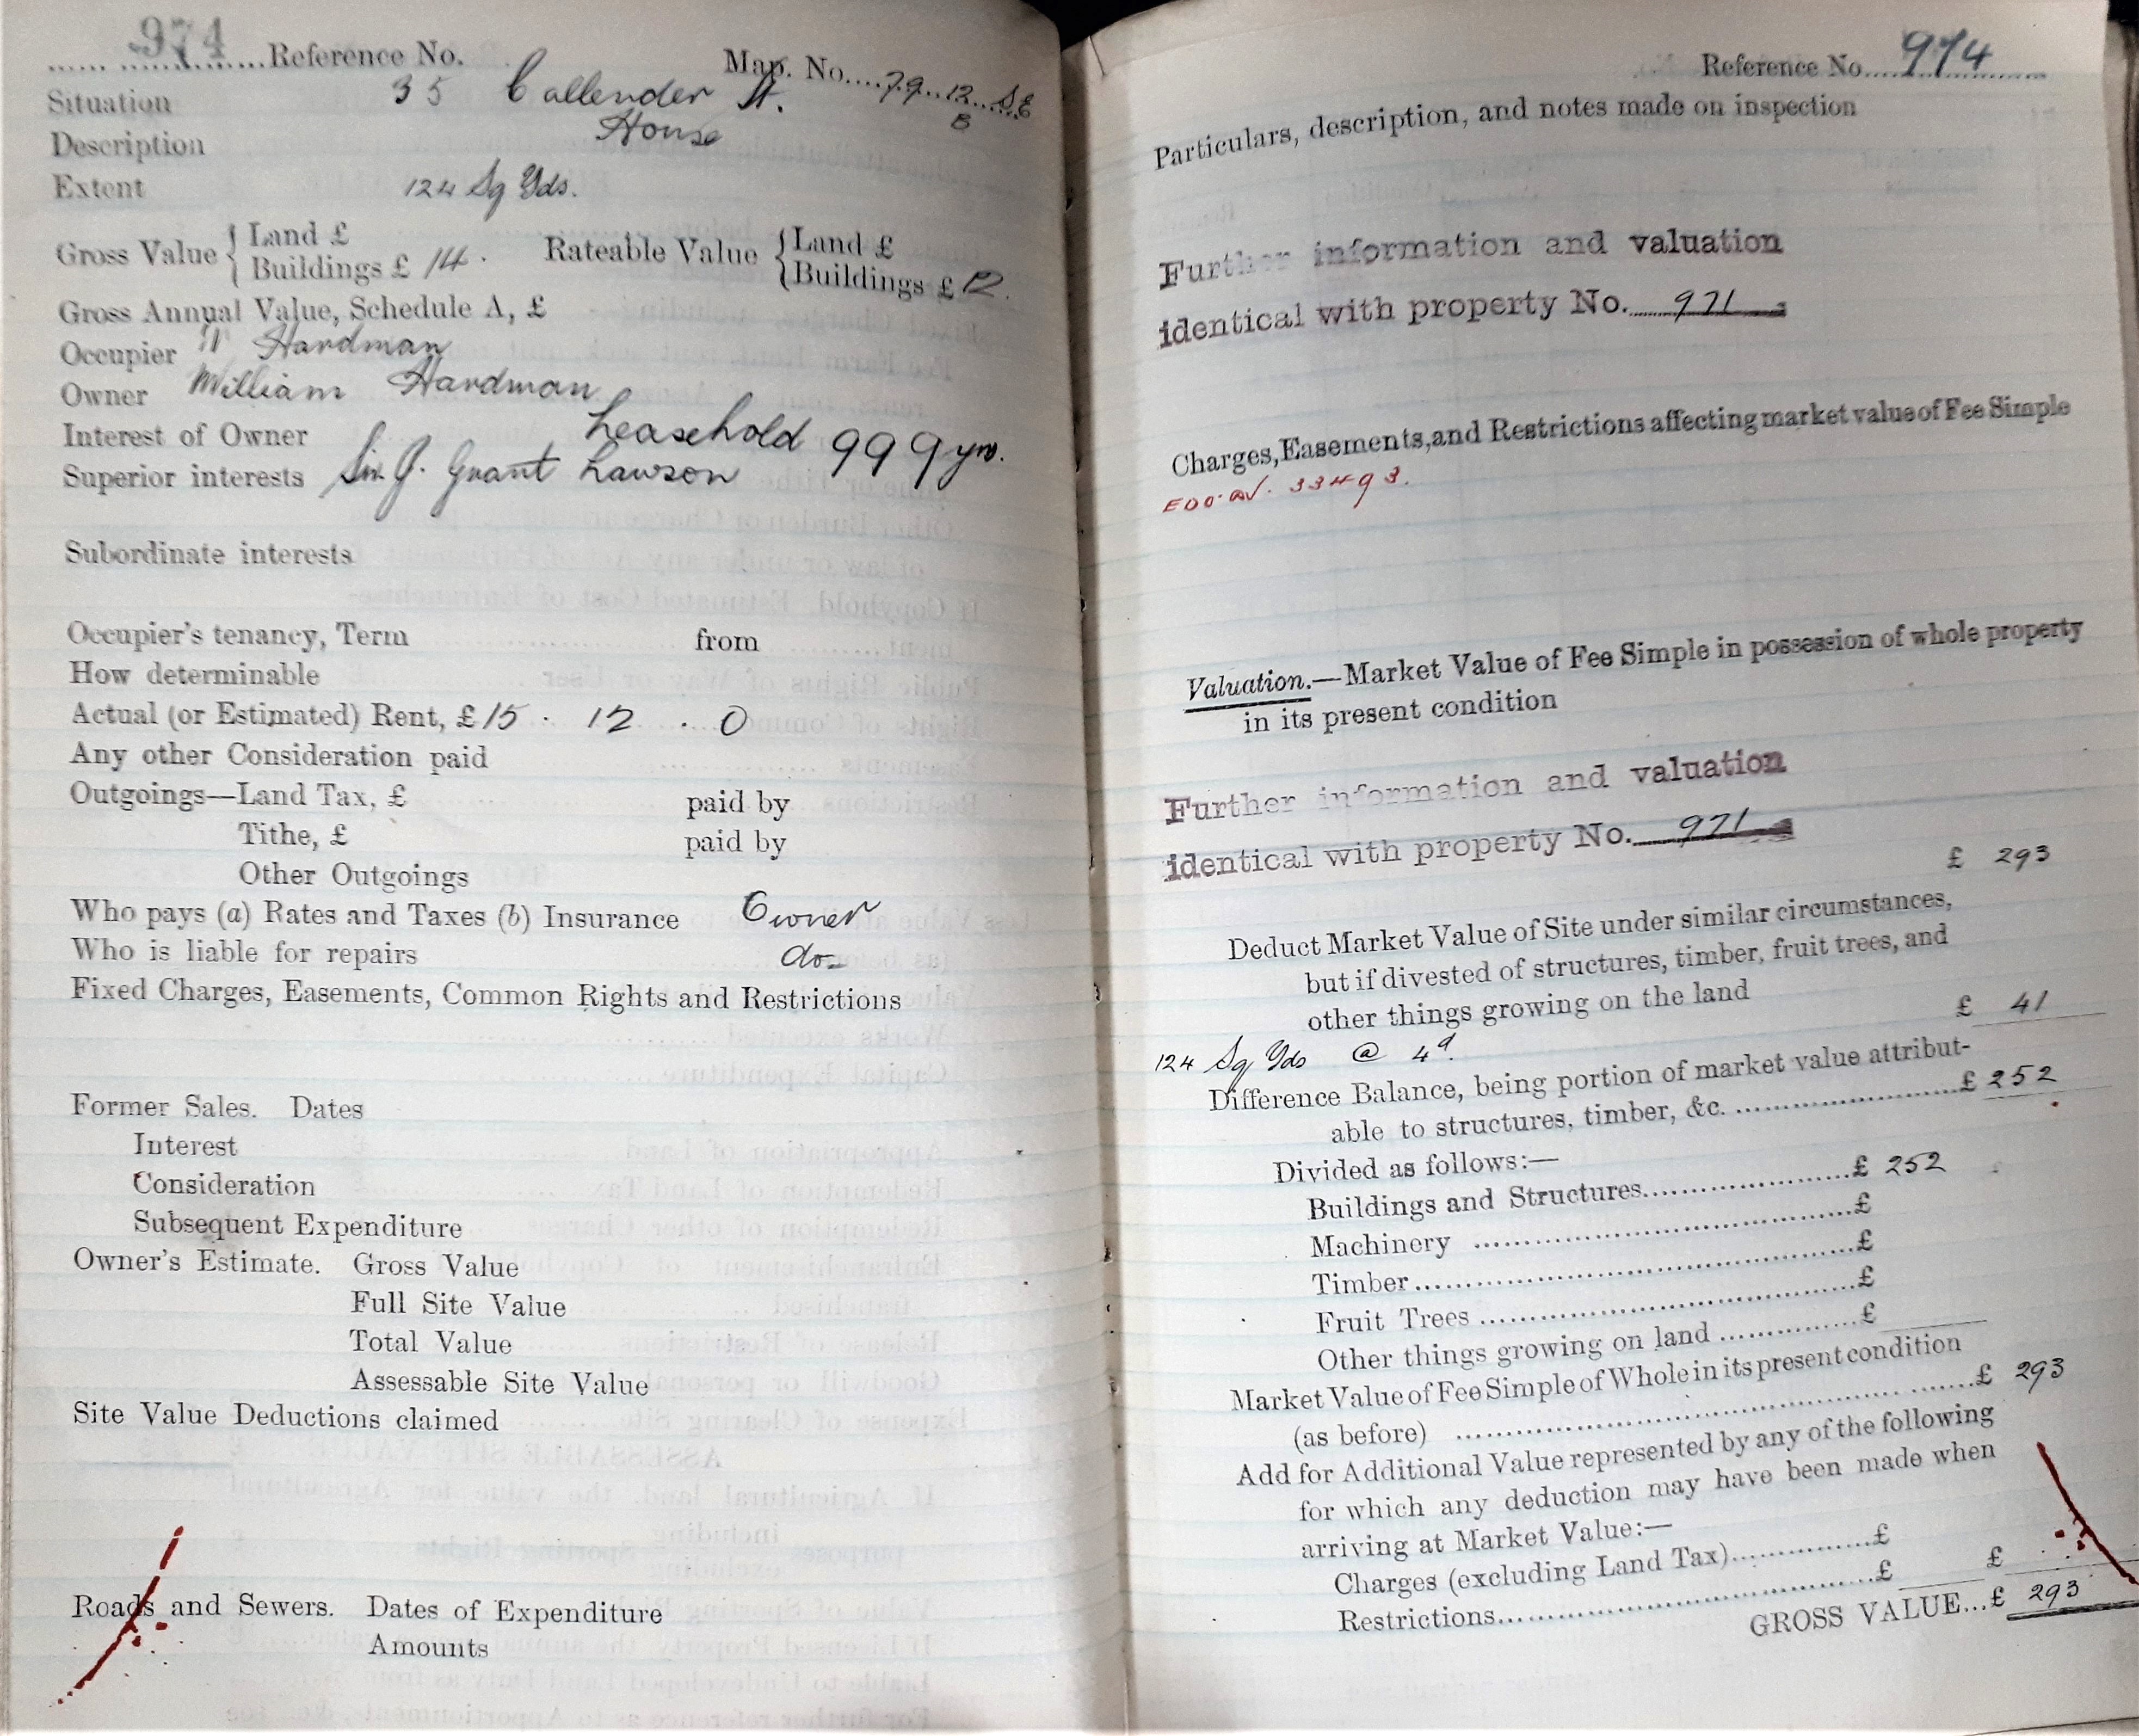 974 Reference No. Map. No. 79 12 SE
B
Situation 35 Callender St.
Description House
Extent 124 Sq Yds.
Gross Value { Land £ Rateable Value { Land £
Buildings £ 14. Buildings £ 12.
Gross Annual Value, Schedule A, £
Occupier W Hardman
Owner William Hardman
Interest of Owner Leasehold 999 yrs.
Superior interests Sir J. Grant Lawson
Subordinate interests
Occupier's tenancy, Term from
How determinable
Actual (or Estimated) Rent, £ 15 . 12 . 0
Any other Consideration paid
Outgoings—Land Tax, £ paid by
Tithe, £ paid by
Other Outgoings
Who pays (a) Rates and Taxes (b) Insurance Owner
Who is liable for repairs do
Fixed Charges, Easements, Common Rights and Restrictions
Former Sales. Dates
Interest
Consideration
Subsequent Expenditure
Owner's Estimate. Gross Value
Full Site Value
Total Value
Assessable Site Value
Site Value Deductions claimed
Roads and Sewers. Dates of Expenditure
Amounts
Reference No. 974
Particulars, description, and notes made on inspection
Further information and valuation
identical with property No. 971
Charges, Easements, and Restrictions affecting market value of Fee Simple
33493.
Valuation.—Market Value of Fee Simple in possession of whole property
in its present condition
Further information and valuation
identical with property No. 971
£ 293
Deduct Market Value of Site under similar circumstances,
but if divested of structures, timber, fruit trees, and
other things growing on the land £ 41
124 Sq Yds @ 4d.
Difference Balance, being portion of market value attribut-
able to structures, timber, &c. £ 252
Divided as follows:—
Buildings and Structures £ 252
Machinery £
Timber £
Fruit Trees £
Other things growing on land £
Market Value of Fee Simple of Whole in its present condition
(as before) £ 293
Add for Additional Value represented by any of the following
for which any deduction may have been made when
arriving at Market Value:—
Charges (excluding Land Tax) £
Restrictions £ £
GROSS VALUE... £ 293